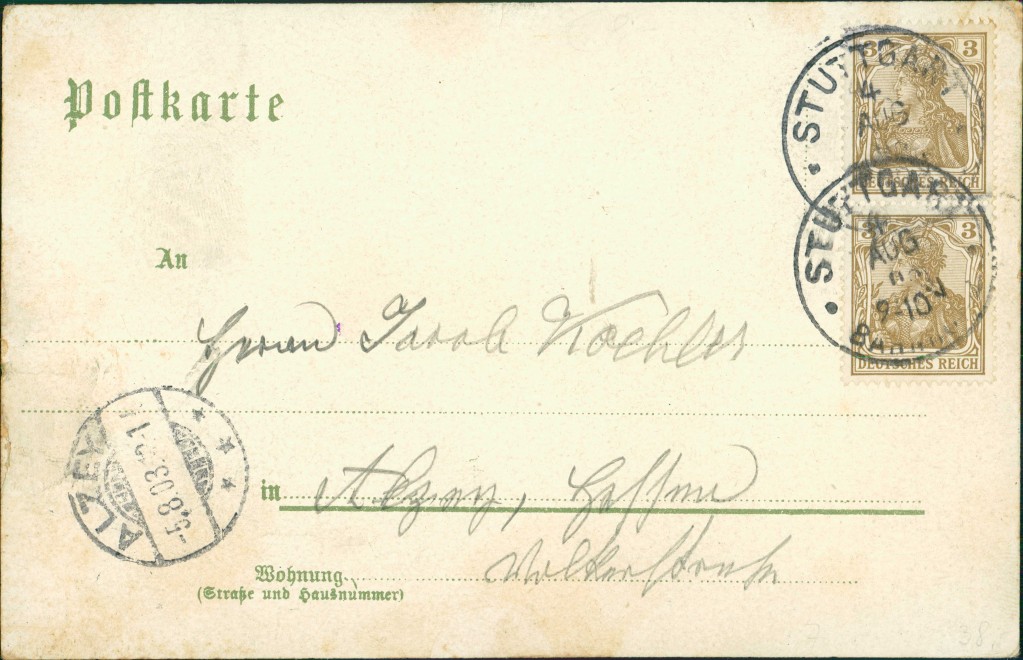 Postkarte
3 3
STUTTGART
4
AUG
DEUTSCHES REICH
3 3
STUTTGART
4
AUG
03
9-10V
BAHNHOF
DEUTSCHES REICH
An
Herrn Jacob Koehler
ALZEY
-5.8.03.
in Alzey, Hessen
Volkerstrasse
Wohnung
(Straße und Hausnummer)
38.